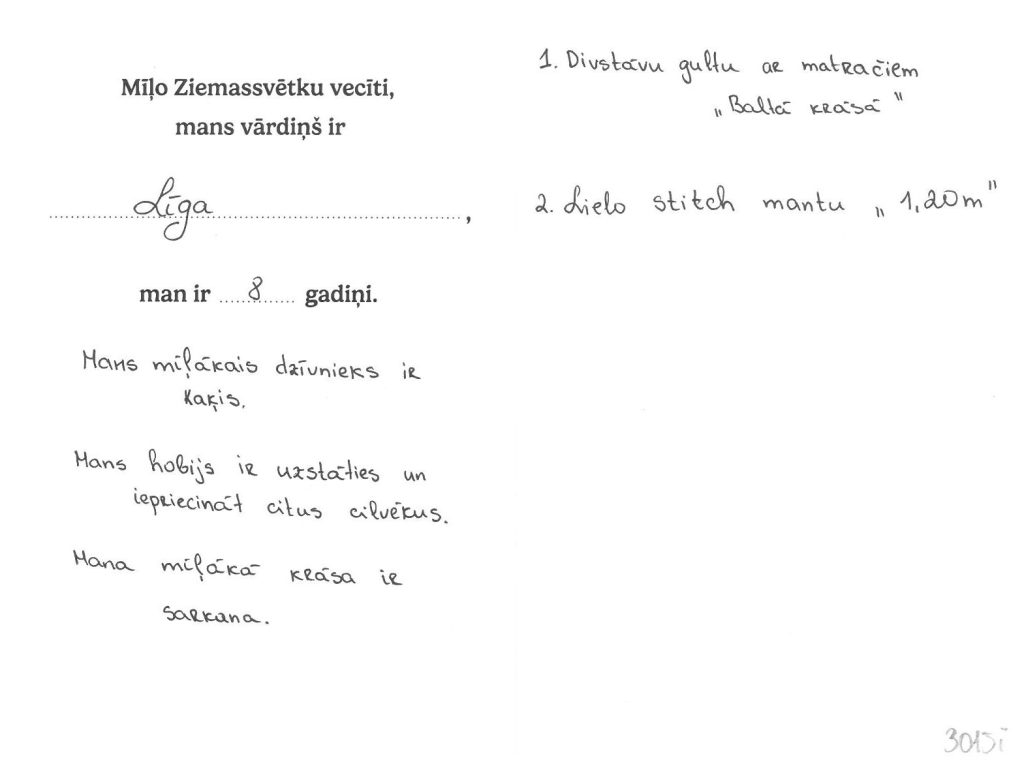 Mīļo Ziemassvētku vecīti,
mans vārdiņš ir
Līga,
man ir 8 gadiņi.
Mans mīļākais dzīvnieks ir
kaķis.
Mans hobijs ir uzstāties un
iepriecināt citus cilvēkus.
Mana mīļākā krāsa ir
sarkana.
1. Divstāvu gultu ar matračiem
„Baltā krāsā"
2. Lielo stitch mantu „1,20m"